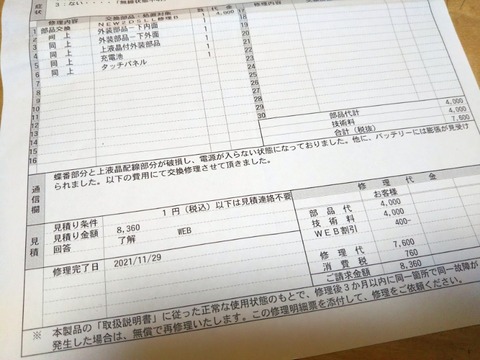 症状
3：ない
修理内容 交換部品・処置対象 数 代金
1 部品交換 NEW2DSLL修理B 4,000 17
2 同上 外装部品－下内面 1 18
3 同上 外装部品－下外面 1 19
4 同上 上液晶付外装部品 1 20
5 同上 充電池 1 21
6 同上 タッチパネル 1 22
7 23
8 24
9 25
10 26
11 27
12 28
13 29
14 30
15
16
部品代計 4,000
技術料 4,000
合計（税抜） 7,600
通信欄
蝶番部分と上液晶配線部分が破損し、電源が入らない状態になっておりました。他に、バッテリーには膨張が見受け
られました。以下の費用にて交換修理させて頂きました。
見積
1円（税込）以下は見積連絡不要
見積り条件
見積り金額 8,360
回答 了解 WEB
修理完了日 2021/11/29
修理代金
お客様
部品代 4,000
技術料 4,000
WEB割引 400-
修理代 7,600
消費税 760
ご請求金額 8,360
※ 本製品の「取扱説明書」に従った正常な使用状態のもとで、修理後3か月以内に同一箇所で同一故障が
発生した場合は、無償で再修理いたします。この修理明細票を添付して、修理をご依頼ください。